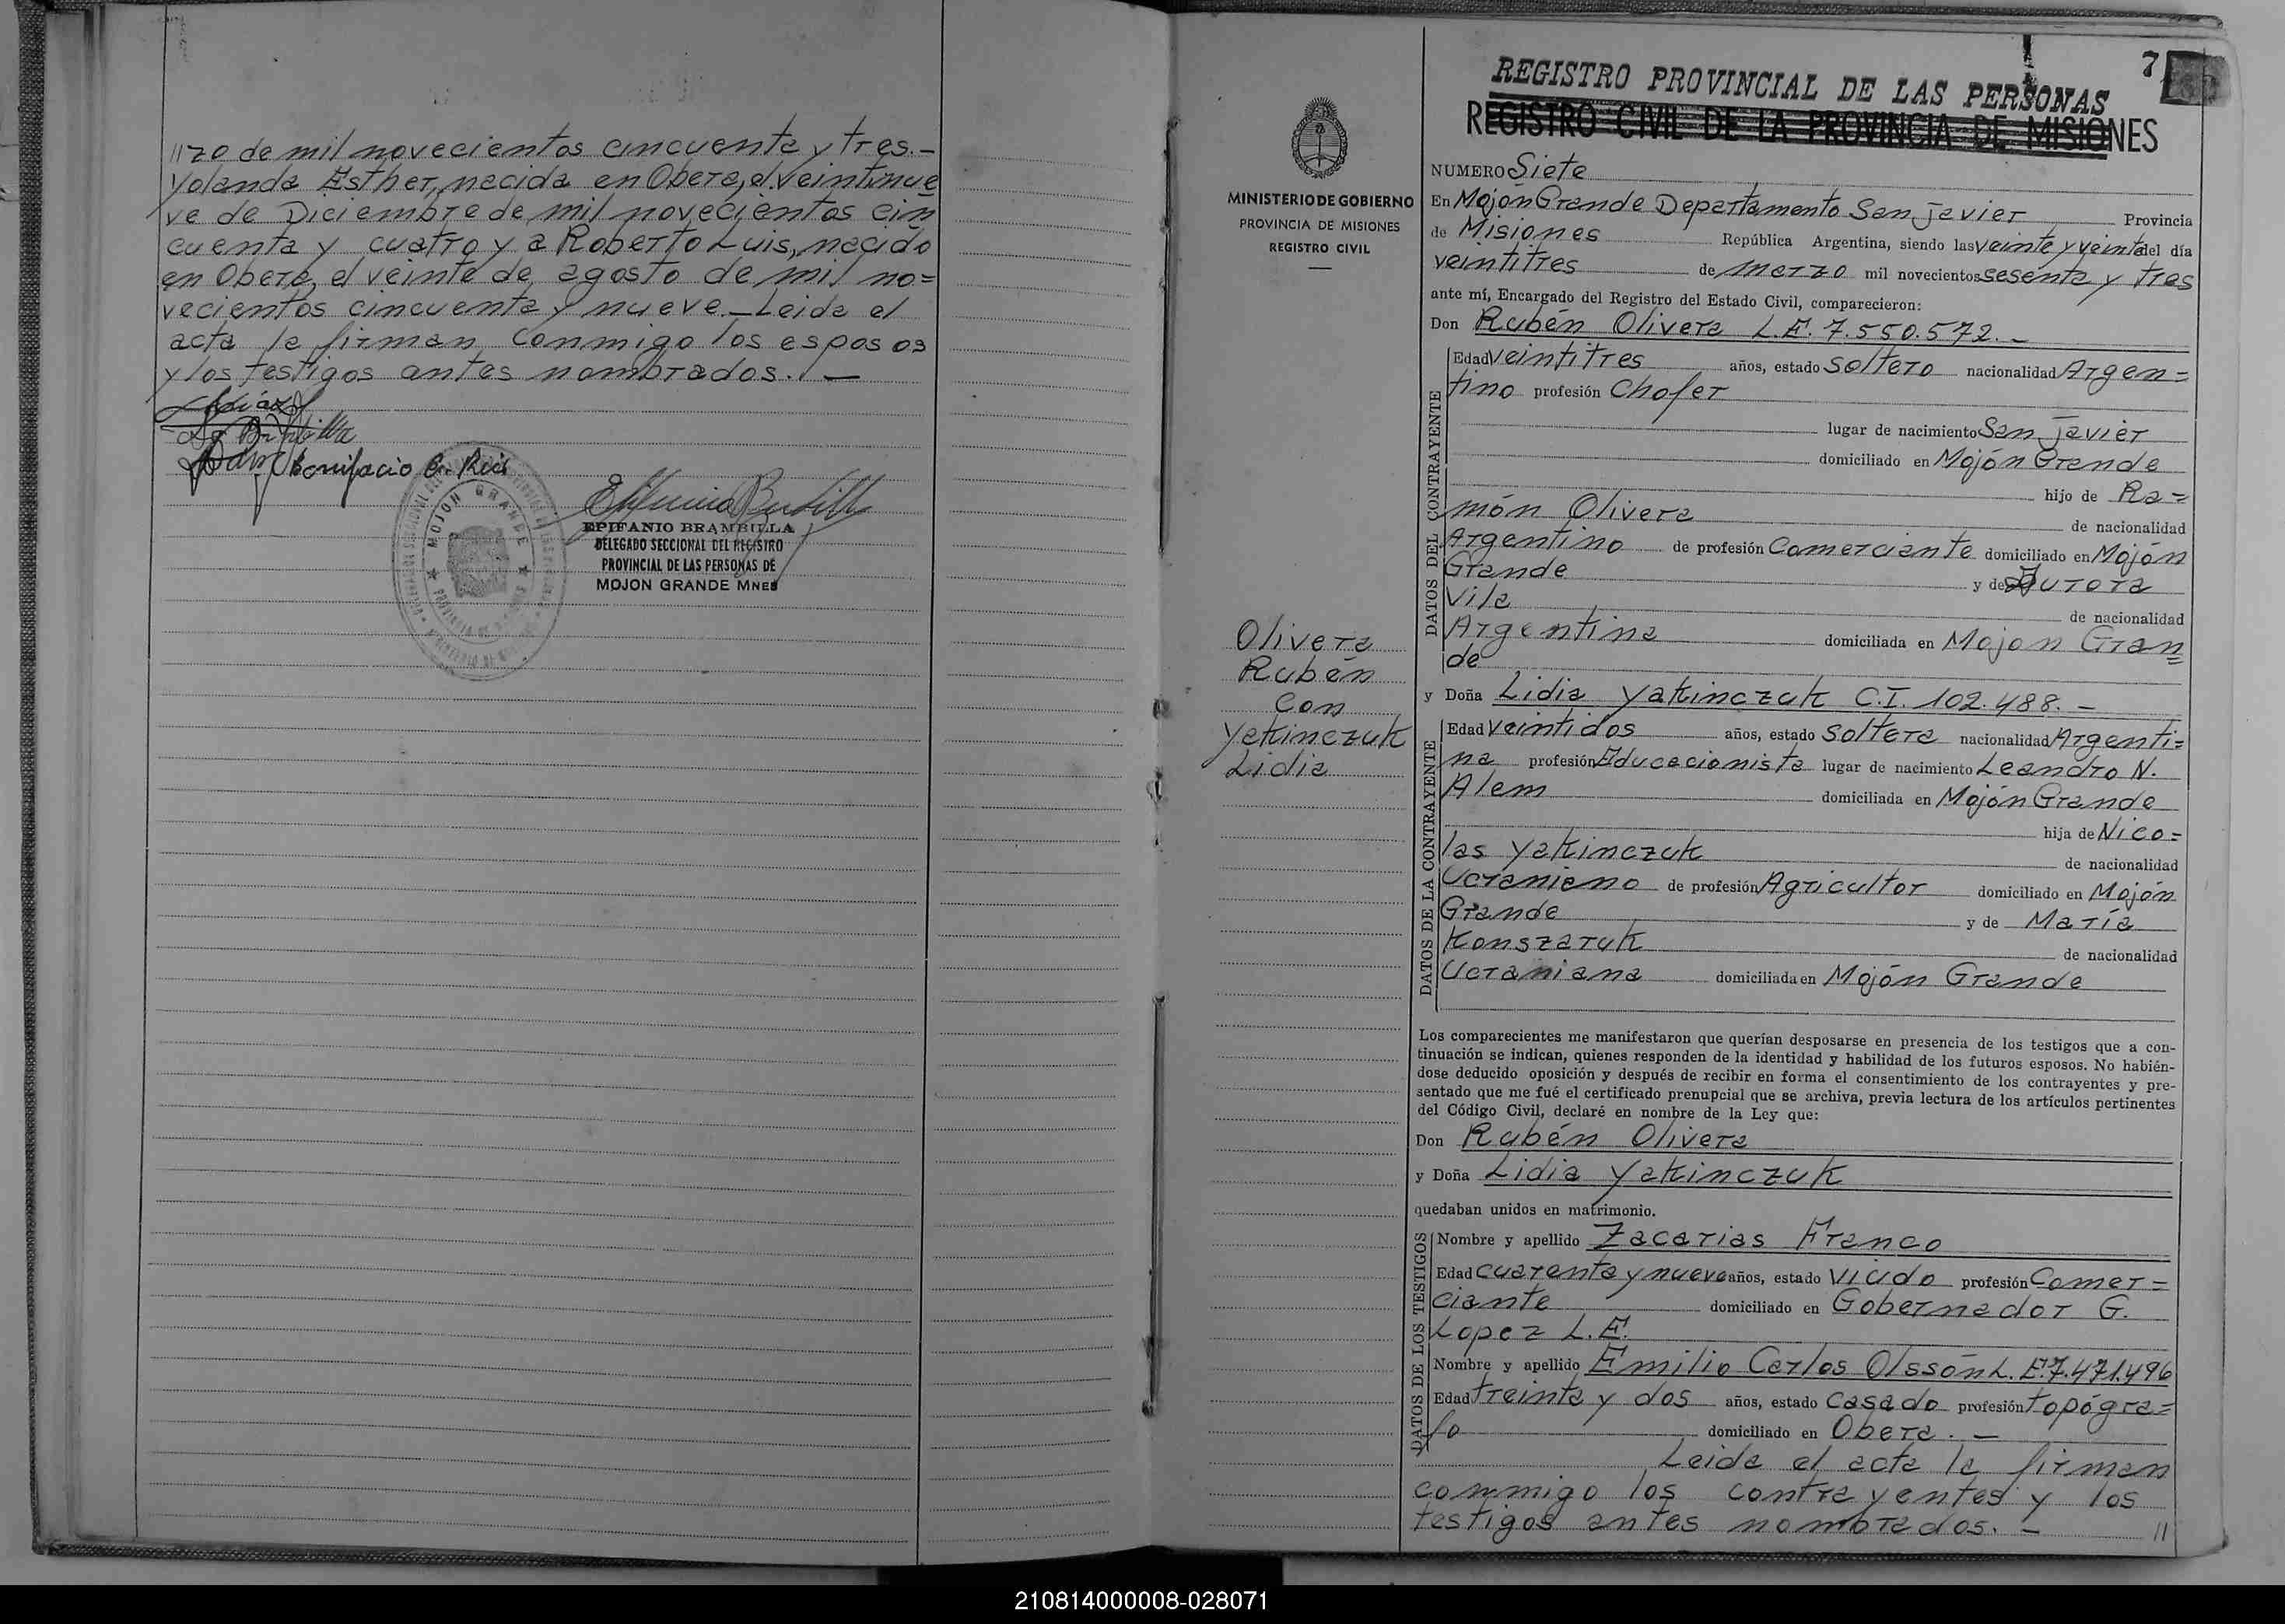 //zo de mil novecientos cincuenta y tres.-
Yolanda Esther, nacida en Obera, el veintinue
ve de Diciembre de mil novecientos cin
cuenta y cuatro y a Roberto Luis, nacido
en Obera, el veinte de agosto de mil no=
vecientos cincuenta y nueve.- Leida el
acta la firman conmigo los esposos
y los testigos antes nombrados.-
Bonifacio
MOJON GRANDE
EPIFANIO BRAMBILLA
DELEGADO SECCIONAL DEL REGISTRO
PROVINCIAL DE LAS PERSONAS DE
MOJON GRANDE MNES
MINISTERIO DE GOBIERNO
PROVINCIA DE MISIONES
REGISTRO CIVIL
Olivera
Rubén
Con
Yakinczuk
Lidia
7
REGISTRO PROVINCIAL DE LAS PERSONAS
REGISTRO CIVIL DE LA PROVINCIA DE MISIONES
NUMERO Siete
En Mojón Grande Departamento San Javier Provincia
de Misiones República Argentina, siendo las veinte y veinte del día
veintitres de marzo mil novecientos sesenta y tres
ante mí, Encargado del Registro del Estado Civil, comparecieron:
Don Rubén Olivera L.E. 7.550.572.-
DATOS DEL CONTRAYENTE
Edad veintitres años, estado soltero nacionalidad Argen=
tino profesión Chofer
lugar de nacimiento San Javier
domiciliado en Mojón Grande
hijo de Ra=
món Olivera de nacionalidad
Argentino de profesión Comerciante domiciliado en Mojón
Grande y de Aurora
Vila de nacionalidad
Argentina domiciliada en Mojon Gran
de
y Doña Lidia Yakinczuk C.I. 102.488.-
DATOS DE LA CONTRAYENTE
Edad veintidos años, estado soltera nacionalidad Argenti=
na profesión Educacionista lugar de nacimiento Leandro N.
Alem domiciliada en Mojón Grande
hija de Nico=
las Yakinczuk de nacionalidad
Ucraniano de profesión Agricultor domiciliado en Mojón
Grande y de María
Konszaruk de nacionalidad
Ucraniana domiciliada en Mojón Grande
Los comparecientes me manifestaron que querían desposarse en presencia de los testigos que a con-
tinuación se indican, quienes responden de la identidad y habilidad de los futuros esposos. No habién-
dose deducido oposición y después de recibir en forma el consentimiento de los contrayentes y pre-
sentado que me fué el certificado prenupcial que se archiva, previa lectura de los artículos pertinentes
del Código Civil, declaré en nombre de la Ley que:
Don Rubén Olivera
y Doña Lidia Yakinczuk
quedaban unidos en matrimonio.
DATOS DE LOS TESTIGOS
Nombre y apellido Zacarias Franco
Edad cuarenta y nueve años, estado viudo profesión Comer=
ciante domiciliado en Gobernador G.
Lopez L.E.
Nombre y apellido Emilio Carlos Olssón L.E. 7.471.496
Edad treinta y dos años, estado casado profesión topógra=
fo domiciliado en Obera.-
Leida el acta la firman
conmigo los contrayentes y los
testigos antes nombrados.- //
210814000008-028071